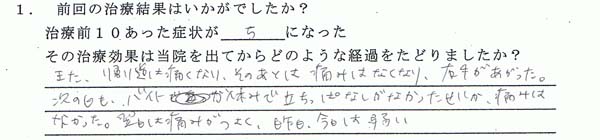 1． 前回の治療結果はいかがでしたか？
治療前１０あった症状が 5 になった
その治療効果は当院を出てからどのような経過をたどりましたか？
また、帰り道は痛くなり、そのあとは 痛みはなくなり、左手があがった。
次の日も、バイトが休みで立ちっぱなしがなかったせいか、痛みは
なかった。翌日は痛みがつよく、昨日、今日は弱い